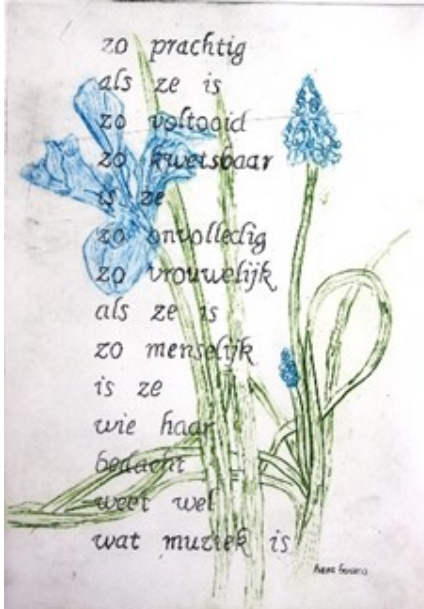 zo prachtig
als ze is
zo voltooid
zo kwetsbaar
is ze
zo onvolledig
zo vrouwelijk
als ze is
zo menselijk
is ze
wie haar
bedacht
weet wel
wat muziek is